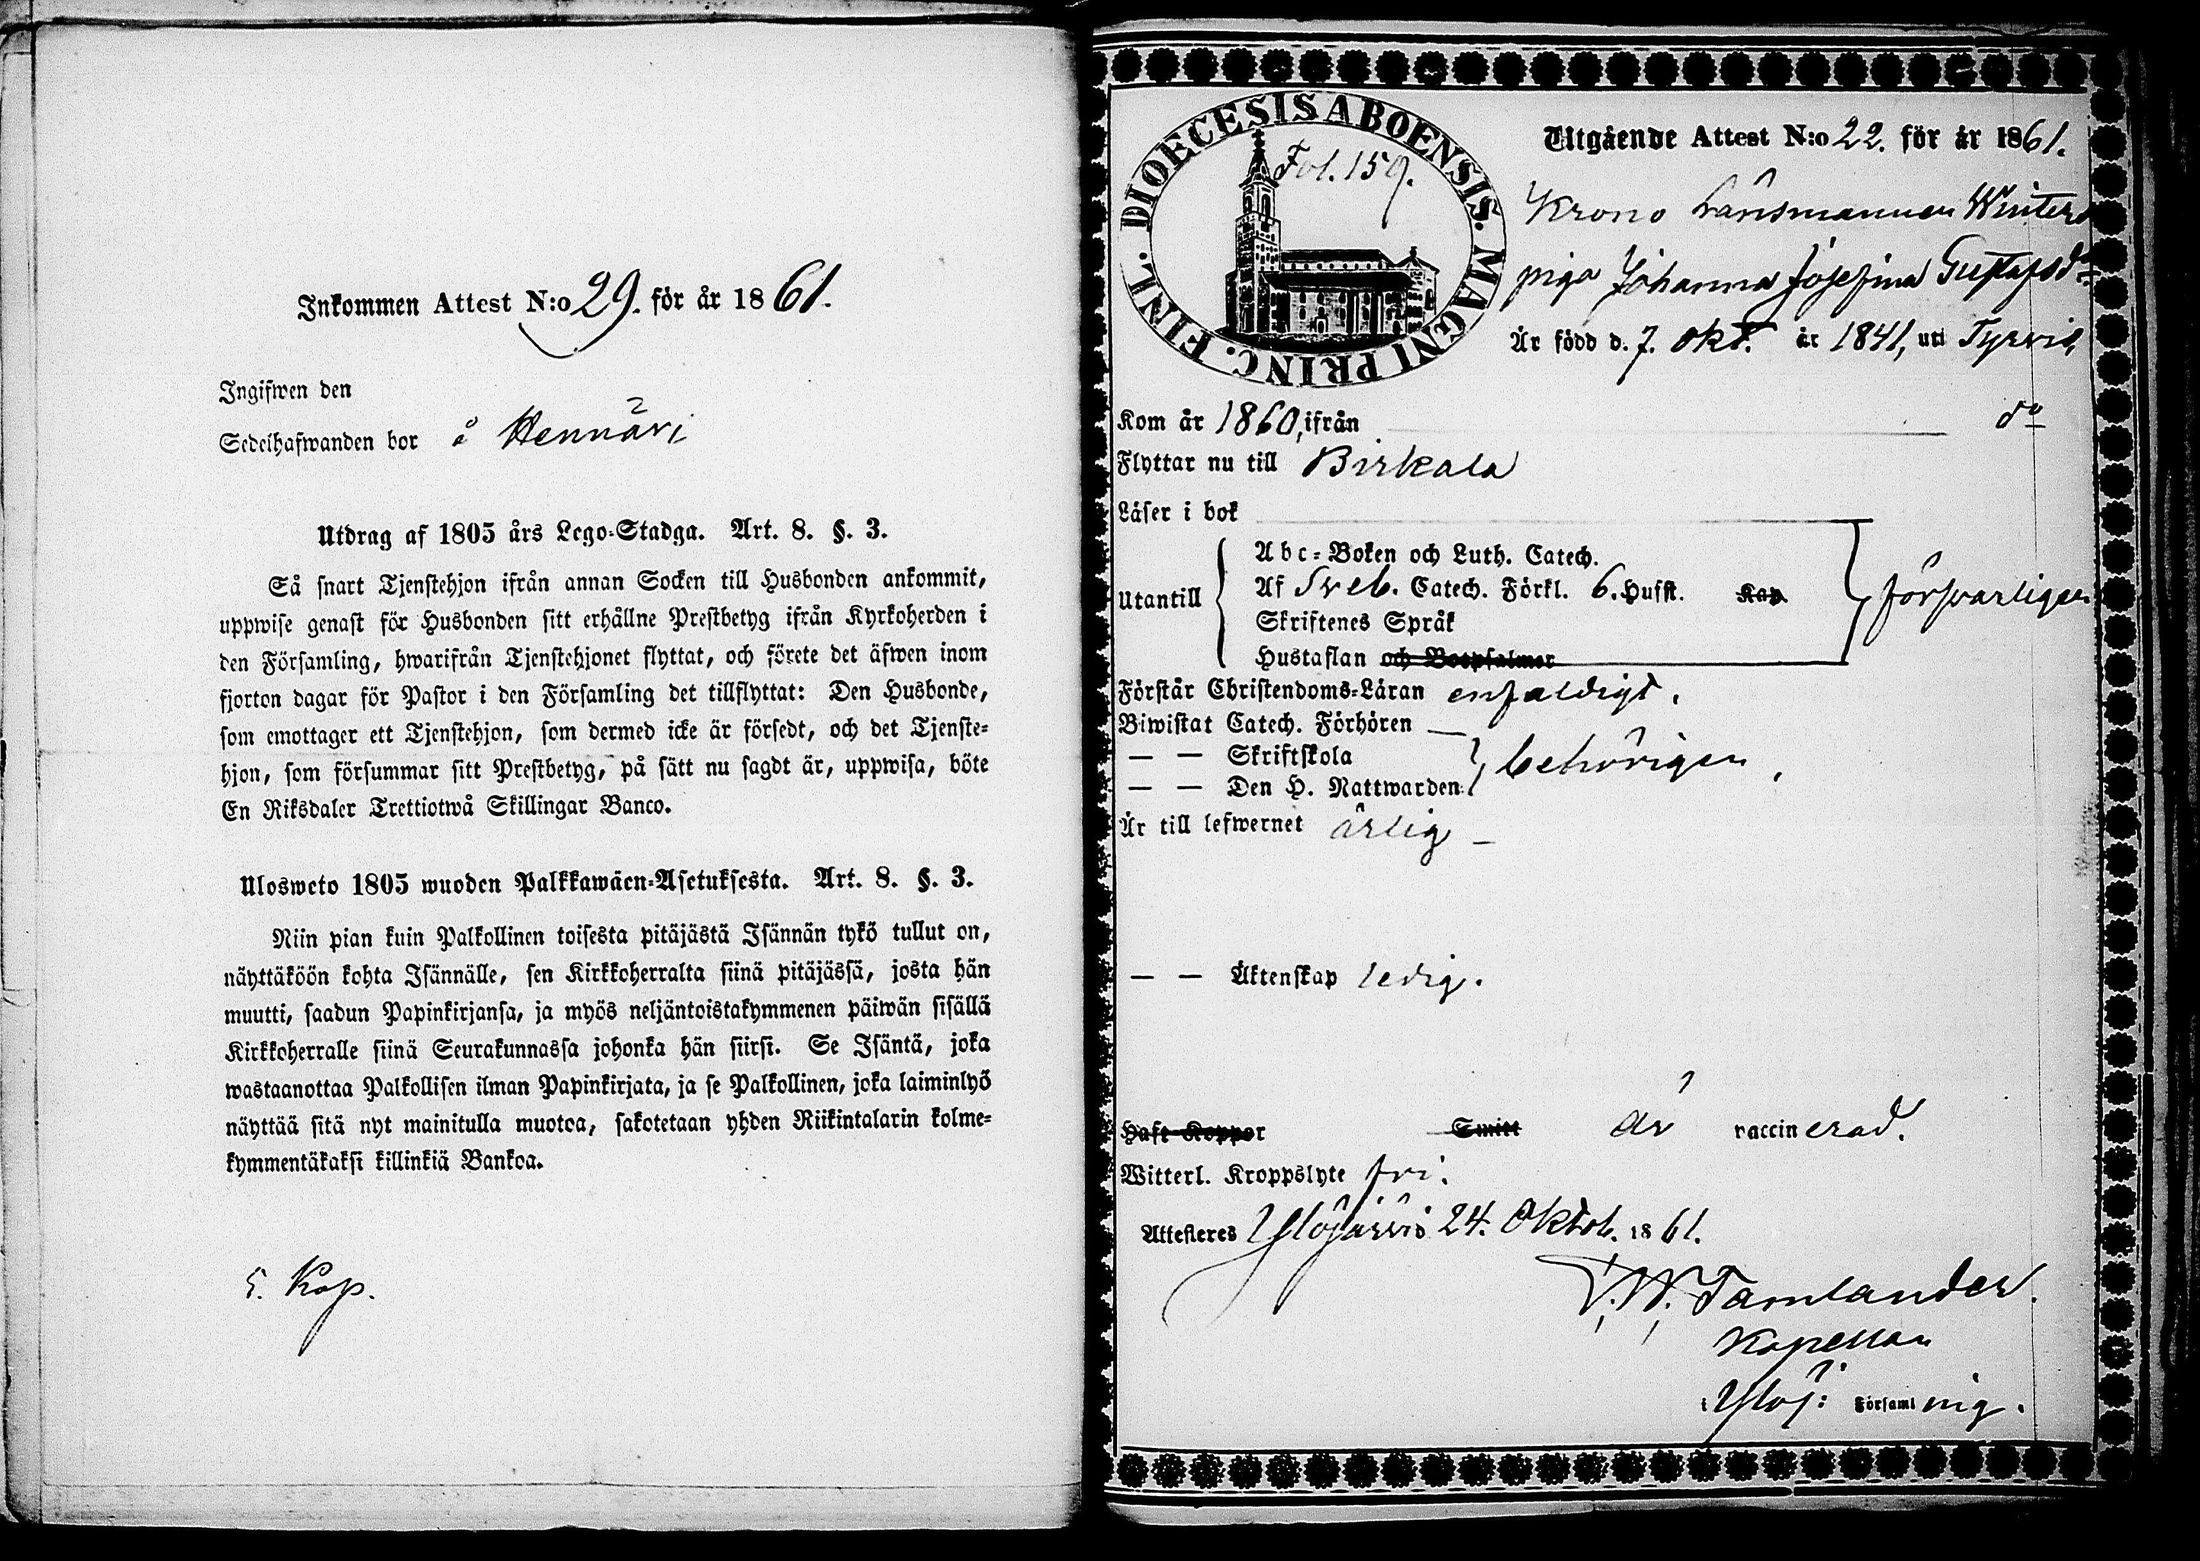 Inkommen Attest N:o 29. för år 1861.
Ingifwen den
Sedelhafwanden bor å Hennäri
Utdrag af 1805 års Lego-Stadga. Art. 8. §. 3.
Så snart Tjenstehjon ifrån annan Socken till Husbonden ankommit,
uppwise genast för Husbonden sitt erhållne Prestbetyg ifrån Kyrkoherden i
den Församling, hwarifrån Tjenstehjonet flyttat, och förete det äfwen inom
fjorton dagar för Pastor i den Församling det tillflyttat: Den Husbonde,
som emottager ett Tjenstehjon, som dermed icke är försedt, och det Tjenste-
hjon, som försummar sitt Prestbetyg, på sätt nu sagdt är, uppwisa, böte
En Riksdaler Trettiotwå Skillingar Banco.
Ulosweto 1805 wuoden Palkkawäen-Asetuksesta. Art. 8. §. 3.
Niin pian kuin Palkollinen toisesta pitäjästä Isännän tykö tullut on,
näyttäköön kohta Isännälle, sen Kirkkoherralta siinä pitäjässä, josta hän
muutti, saadun Papinkirjansa, ja myös neljäntoistakymmenen päiwän sisällä
Kirkkoherralle siinä Seurakunnassa johonka hän siirsi. Se Isäntä, joka
wastaanottaa Palkollisen ilman Papinkirjata, ja se Palkollinen, joka laiminlyö
näyttää sitä nyt mainitulla muotoa, sakotetaan yhden Riikintalarin kolme-
kymmentäkaksi killinkiä Bankoa.
5. Kop.
DIOECESIS ABOENSIS. MAGNI PRINC. FINL.
Fol. 159.
Utgående Attest N:o 22. för år 1861.
Krono Länsmannen Winters
piga Johanna Josefina Gustafsdr
Är född d. 7. Okt. år 1841, uti Tyrvis,
Kom år 1860, ifrån do
Flyttar nu till Birkala
Läser i bok
Abc-Boken och Luth. Catech.
Utantill Af Sveb. Catech. Förkl. 6. Husst. Kap. försvarligen
Skriftenes Språk
Hustaflan och Botpsalmer
Förstår Christendoms-Läran enfaldigt.
Biwistat Catech. Förhören —
— — Skriftskola behörigen,
— — Den H. Nattwarden
Är till lefwernet ärlig —
— — Äktenskap ledig.
Haft Koppor Smitt är vaccinerad.
Witterl. Kroppslyte fri.
Attesteres Ylöjärvis 24. Oktob. 1861.
V. W. Tamlander.
Kapellan
i Ylöj: Församlinig.